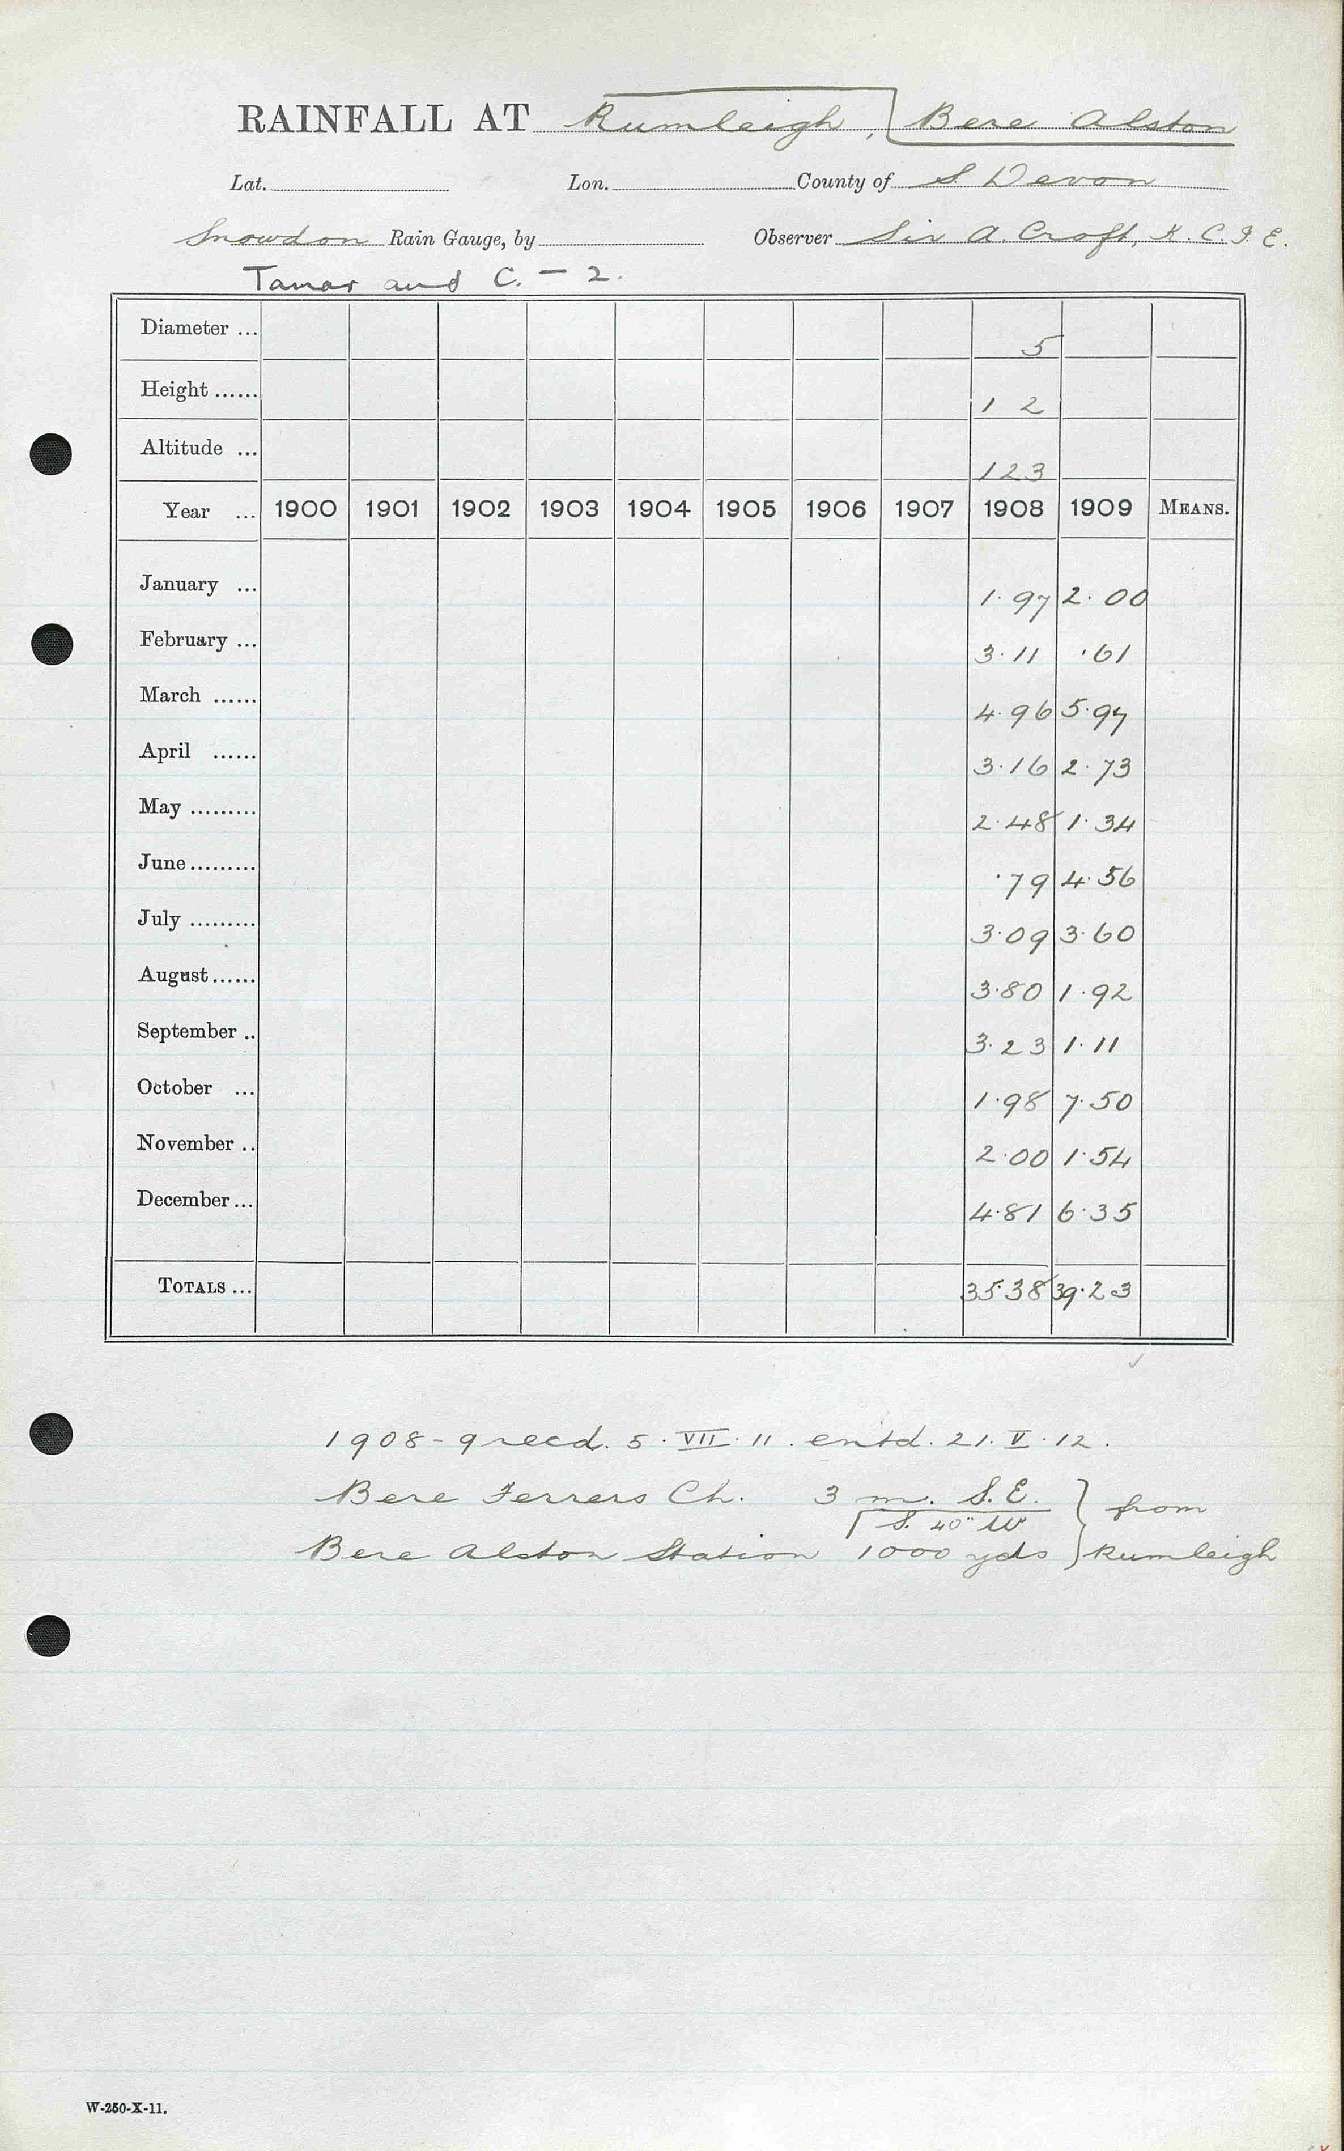 RAINFALL AT Rumleigh, Bere Alston
Lat. Lon. County of S Devon
Snowdon Rain Gauge, by Observer Sir A. Croft, K.C.I.E.
Tamar and C. - 2.
Diameter ... 5
Height ...... 12
Altitude ... 123
Year ... 1900 1901 1902 1903 1904 1905 1906 1907 1908 1909 MEANS.
January ... 1.97 2.00
February ... 3.11 .61
March ...... 4.96 5.97
April ...... 3.16 2.73
May ......... 2.48 1.34
June ......... .79 4.56
July ......... 3.09 3.60
August ...... 3.80 1.92
September .. 3.23 1.11
October ... 1.98 7.50
November .. 2.00 1.54
December ... 4.81 6.35
TOTALS ... 35.38 39.23
1908-9 recd. 5.VII.11. entd. 21.V.12.
Bere Ferrers Ch. 3 m. S.E. } from
S. 40° W
Bere Alston Station 1000 yds } Rumleigh
W-250-X-11.